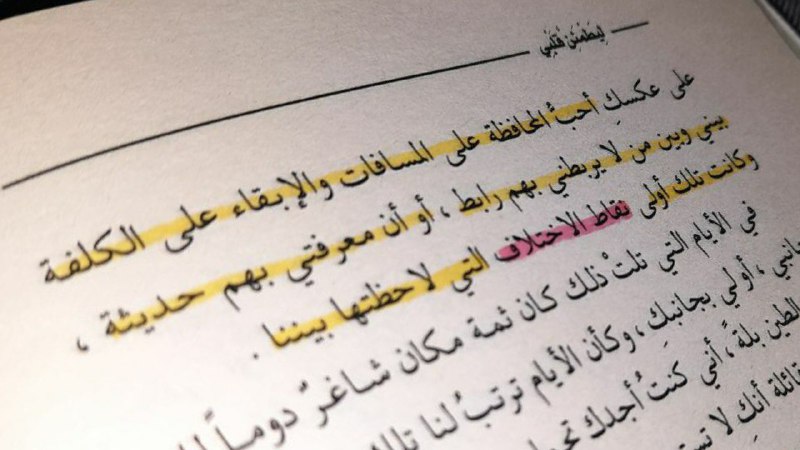 ليطمئن قلبي
على عكسكِ أحبُّ المحافظة على المسافات والإبقاء على الكلفة
بيني وبين من لا يربطني بهم رابط ، أو أن معرفتي بهم حديثة ،
وكانت تلك أولى نقاط الاختلاف التي لاحظتها بيننا .
في الأيام التي تلتْ ذلك كان ثمة مكان شاغرٌ دوماً
بجانبي ، أولي بجانبكِ ، وكأن الأيام ترتبُ لنا تلك
الطين بلةً ، أني كنتُ أجدك
قائلة أنكِ لا